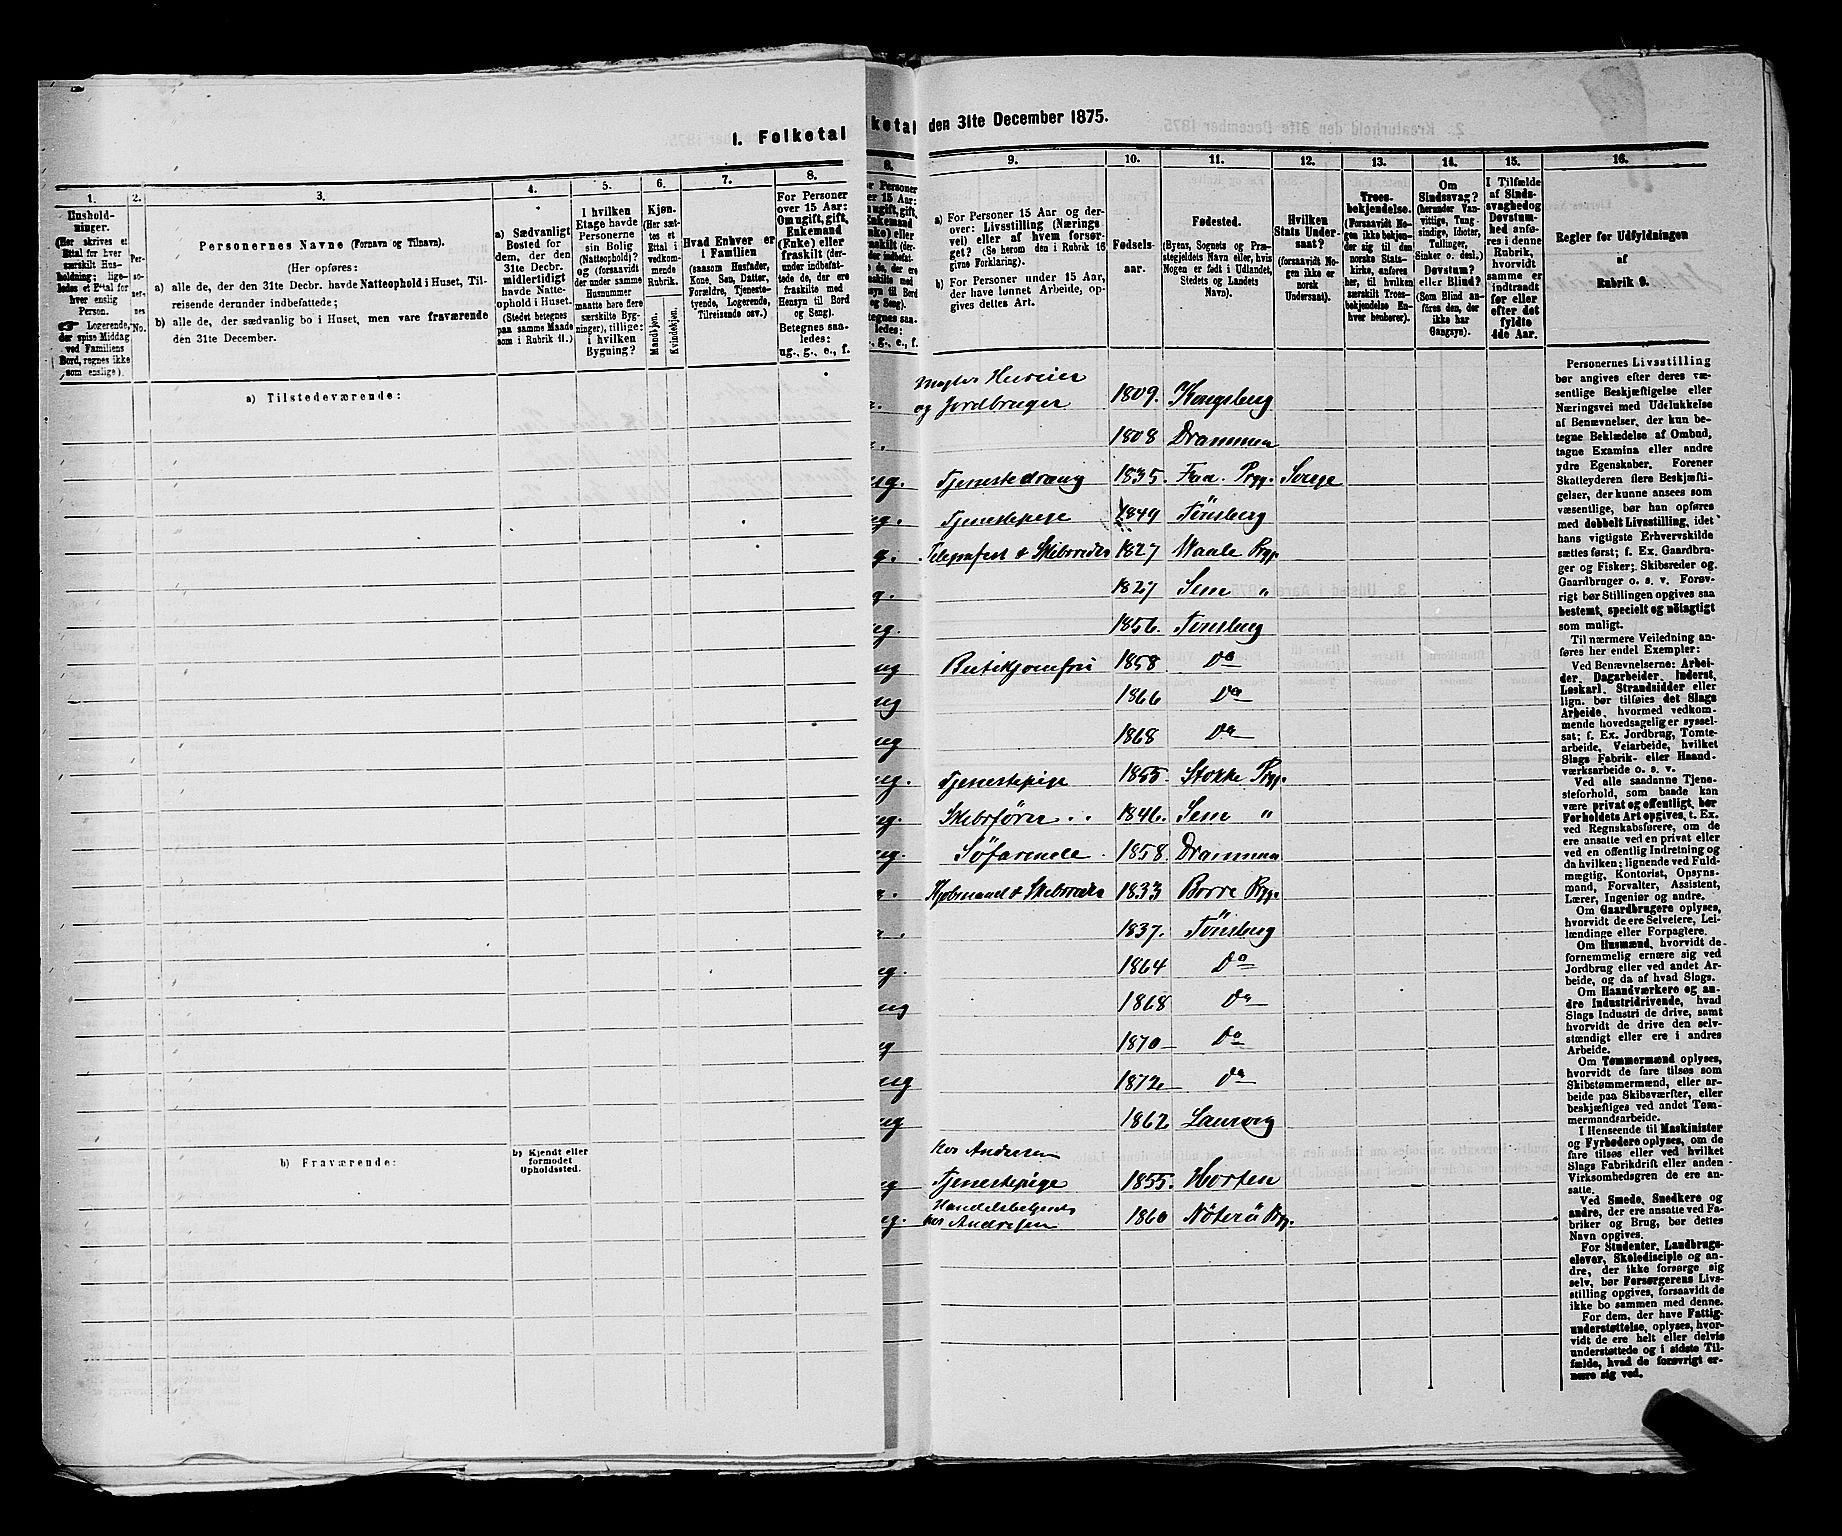 1. Folketal
ketal den 31te December 1875.
1.
2.
3.
4.
5.
6.
7.
8.
Hushold-
ninger.
(Her skrives et
Ettal for hver
særskilt Hus-
holdning; lige-
ledes et Ettal for
hver enslig
Person.
Logerende,
der spise Middag
ved Familiens
Bord, regnes ikke
som enslige).
Per-
so-
ner-
nes
No.
Personernes Navne (Fornavn og Tilnavn).
(Her opføres:
a) alle de, der den 31te Decbr. havde Natteophold i Huset, Til-
reisende derunder indbefattede;
b) alle de, der sædvanlig bo i Huset, men vare fraværende
den 31te December.
a) Sædvanligt
Bosted for
dem, der den
31te Decbr.
havde Natte-
ophold i Huset.
(Stedet betegnes
paa samme Maade
som i Rubrik 11.)
I hvilken
Etage havde
Personerne
sin Bolig
(Natteophold)?
og (forsaavidt
der under samme
Husnummer
maatte høre flere
særskilte Byg-
ninger), tillige:
i hvilken
Bygning?
Kjøn.
(Her sæt-
tes et
Ettal i
vedkom-
mende
Rubrik.
Mandkjøn.
Kvindekjøn.
Hvad Enhver er
i Familien
(saasom Husfader,
Kone, Søn, Datter,
Forældre, Tjeneste-
tyende, Logerende,
Tilreisende osv.)
For Personer
over 15 Aar:
Om ugift, gift,
Enkemand
(Enke) eller
fraskilt (der-
under indbefat-
tede de, der ere
fraskilte med
Hensyn til Bord
og Seng).
Betegnes saa-
ledes:
ug., g., e., f.
a) Tilstedeværende:
b) Fraværende:
b) Kjendt eller
formodet
Opholdssted.
9.
10.
11.
12.
13.
14.
15.
16.
a) For Personer 15 Aar og der-
over: Livsstilling (Nærings
vei) eller af hvem forsør-
get? (Se herom den i Rubrik 16
givne Forklaring).
b) For Personer under 15 Aar,
der have lønnet Arbeide, op-
gives dettes Art.
Fødsels-
aar.
Fødested.
(Byens, Sognets og Præ-
stegjeldets Navn eller, hvis
Nogen er født i Udlandet,
Stedets og Landets
Navn).
Hvilken
Stats Under-
saat?
(forsaavidt No-
gen ikke er
norsk
Undersaat).
Troes-
bekjendelse.
(Forsaavidt No-
gen ikke bekjen-
der sig til den
norske Stats-
kirke, anføres
her, til hvilken
særskilt Troes-
bekjendelse En-
hver henhører).
Om
Sindssvag?
(herunder Van-
vittige, Tung-
sindige, Idioter,
Tullinger,
Sinker o. desl.)
Døvstum?
eller Blind?
(Som Blind an-
føres den, der
ikke har
Gangsyn).
I Tilfælde
af Sinds-
svaghed og
Døvstum-
hed anfø-
res i denne
Rubrik,
hvorvidt
samme er
indtraadt
før eller
efter det
fyldte
4de Aar.
Regler for Udfyldningen
af
Rubrik 9.
og Jordbruger 1809. Kongsberg
1808 Drammen
ug. Tjenestedreng 1835. Prgj.
ug. Tjenestepige 1849 Tönsberg
g. & Skibsreder 1827 Vaale Prgj.
g. 1827 Sem "
ug. 1856. Tönsberg
ug Butikjomfru 1858 Do
ug 1866 Do
ug 1868 Do
ug. Tjenestepige 1855. Stokke Prgj.
ug. Skibsfører 1846. Sem "
ug. Söfarende 1858. Drammen
Kjöbmand & Skibsreder 1833 Borre Prgj.
1837. Tönsberg
ug. 1864 Do
ug 1868 Do
ug 1870 Do
ug 1872 Do
ug 1862 Laurvig
hos Andresen
ug Tjenestepige 1855. Horten
Handelsbetjent
ug. hos Andresen 1860 Nöterö Prgj.
Personernes Livsstilling
bør angives efter deres væ-
sentlige Beskjæftigelse eller
Næringsvei med Udelukkelse
af Benævnelser, der kun be-
tegne Beklædelse af Ombud,
tagne Examina eller andre
ydre Egenskaber. Forener
Skatteyderen flere Beskjæfti-
gelser, der kunne ansees som
væsentlige, bør han opføres
med dobbelt Livsstilling, idet
hans vigtigste Erhvervskilde
sættes først; f. Ex. Gaardbru-
ger og Fisker; Skibsreder og
Gaardbruger o. s. v. Forøv-
rigt bør Stillingen opgives saa
bestemt, specielt og nöiagtigt
som muligt.
Til nærmere Veiledning an-
føres her endel Exempler:
Ved Benævnelserne: Arbei-
der, Dagarbeider, Inderst,
Løskarl, Strandsidder eller
lign. bør tilføies det Slags
Arbeide, hvormed vedkom-
mende hovedsagelig er syssel-
sat; f. Ex. Jordbrug, Tomte-
arbeide, Veiarbeide, hvilket
Slags Fabrik- eller Haand-
værksarbeide o. s. v.
Ved alle saadanne Tjene-
steforhold, som baade kan
være privat og offentligt, bør
Forholdets Art opgives, t. Ex.
ved Regnskabsførere, om de
ere ansatte ved en privat eller
ved en offentlig Indretning og
da hvilken; lignende ved Fuld-
mægtig, Kontorist, Opsyns-
mand, Forvalter, Assistent,
Lærer, Ingeniør og andre.
Om Gaardbrugere oplyses,
hvorvidt de ere Selveiere, Lei-
lændinge eller Forpagtere.
Om Husmænd, hvorvidt de
fornemmelig ernære sig ved
Jordbrug eller ved andet Ar-
beide, og da af hvad Slags.
Om Haandværkere og an-
dre Industridrivende, hvad
Slags Industri de drive, samt
hvorvidt de drive den selv-
stændigt eller ere i andres
Arbeide.
Om Tømmermænd oplyses,
hvorvidt de fare tilsøs som
Skibstømmermænd, eller ar-
beide paa Skibsværfter, eller
beskjæftiges ved andet Tøm-
mermandsarbeide.
I Henseende til Maskinister
og Fyrbødere oplyses, om de
fare tilsøs eller ved hvilket
Slags Fabrikdrift eller anden
Virksomhedsgren de ere an-
satte.
Ved Smede, Snedkere og
andre, der ere ansatte ved Fa-
briker og Brug, bør dettes
Navn opgives.
For Studenter, Landbrugs-
elever, Skoledisciple og an-
dre, der ikke forsørge sig
selv, bør Forsørgerens Livs-
stilling opgives, forsaavidt de
ikke bo sammen med denne.
For dem, der have Fattig-
understøttelse, oplyses, hvor-
vidt de ere helt eller delvis
understøttede og i sidste Til-
fælde, hvad de forøvrigt er-
nære sig ved.